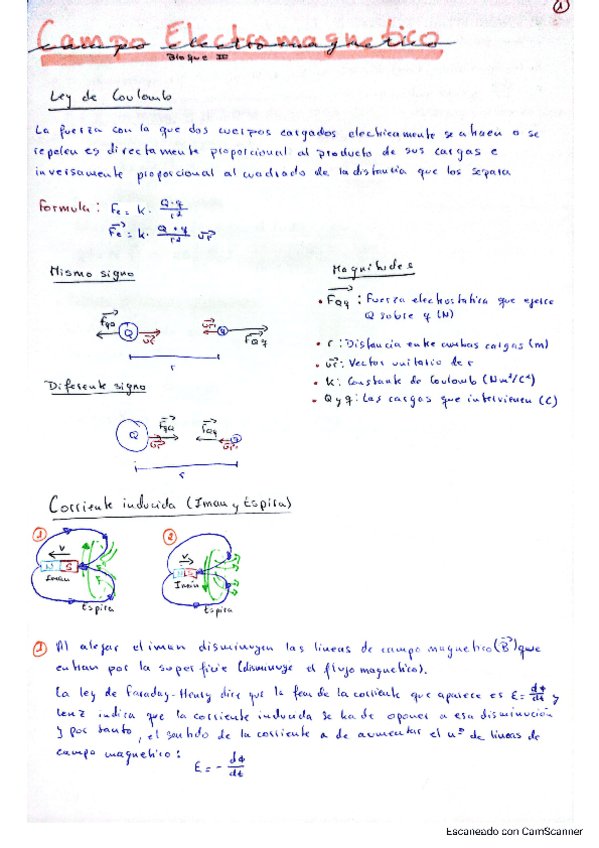 1
Campo Electromagnetico
Bloque III
Ley de Coulomb
La fuerza con la que dos cuerpos cargados electricamente se atraen o se
repelen es directamente proporcional al producto de sus cargas e
inversamente proporcional al cuadrado de la distancia que los separa
Formula: Fe = k · Q·q / r²
Fe = k · Q·q / r² ur
Mismo signo
FqQ Q ur ur q FQq
r
Magnitudes
• FQq : Fuerza electrostatica que ejerce
Q sobre q (N)
• r : Distancia entre ambas cargas (m)
• ur : Vector unitario de r
• K : Constante de Coulomb (Nm²/C²)
• Q y q : Las cargas que intervienen (C)
Diferente signo
Q ur FqQ FQq ur q
r
Corriente inducida (Iman y Espira)
1 v N S Iman Espira
2 v N S Iman Espira
1 Al alejar el iman disminuyen las lineas de campo magnetico (B) que
entran por la superficie (disminuye el flujo magnetico).
La ley de Faraday-Henry dice que la fem de la corriente que aparece es ε = dΦ/dt y
Lenz indica que la corriente inducida se ha de oponer a esa disminución
y por tanto, el sentido de la corriente a de aumentar el nº de lineas de
campo magnetico :
ε = - dΦ/dt
Escaneado con CamScanner